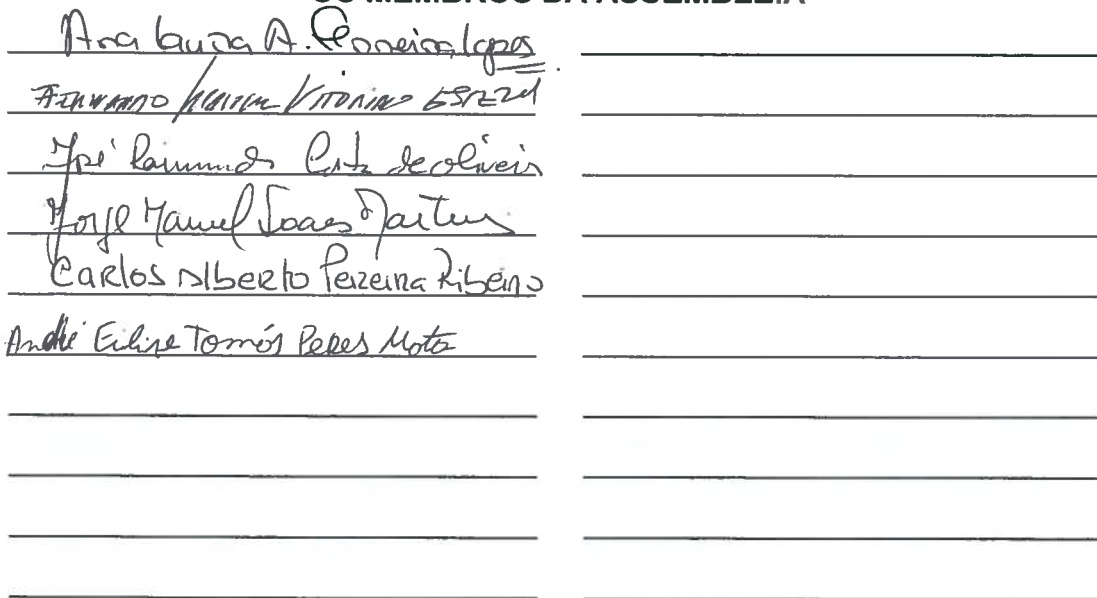 OS MEMBROS DA ASSEMBLEIA
Ana Laura A. Ferreira Lopes
Fernando Vitorino
José Raimundo de Oliveira
Jorge Manuel Soares Martins
Carlos Alberto Pereira Ribeiro
André Filipe Tomás Peres Mota